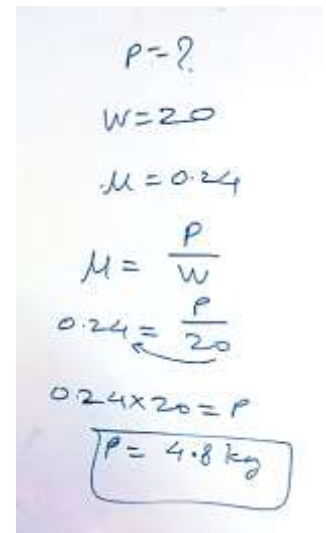 P=?
W=20
μ=0.24
μ= P/W
0.24= P/20
0.24x20=P
P= 4.8 kg